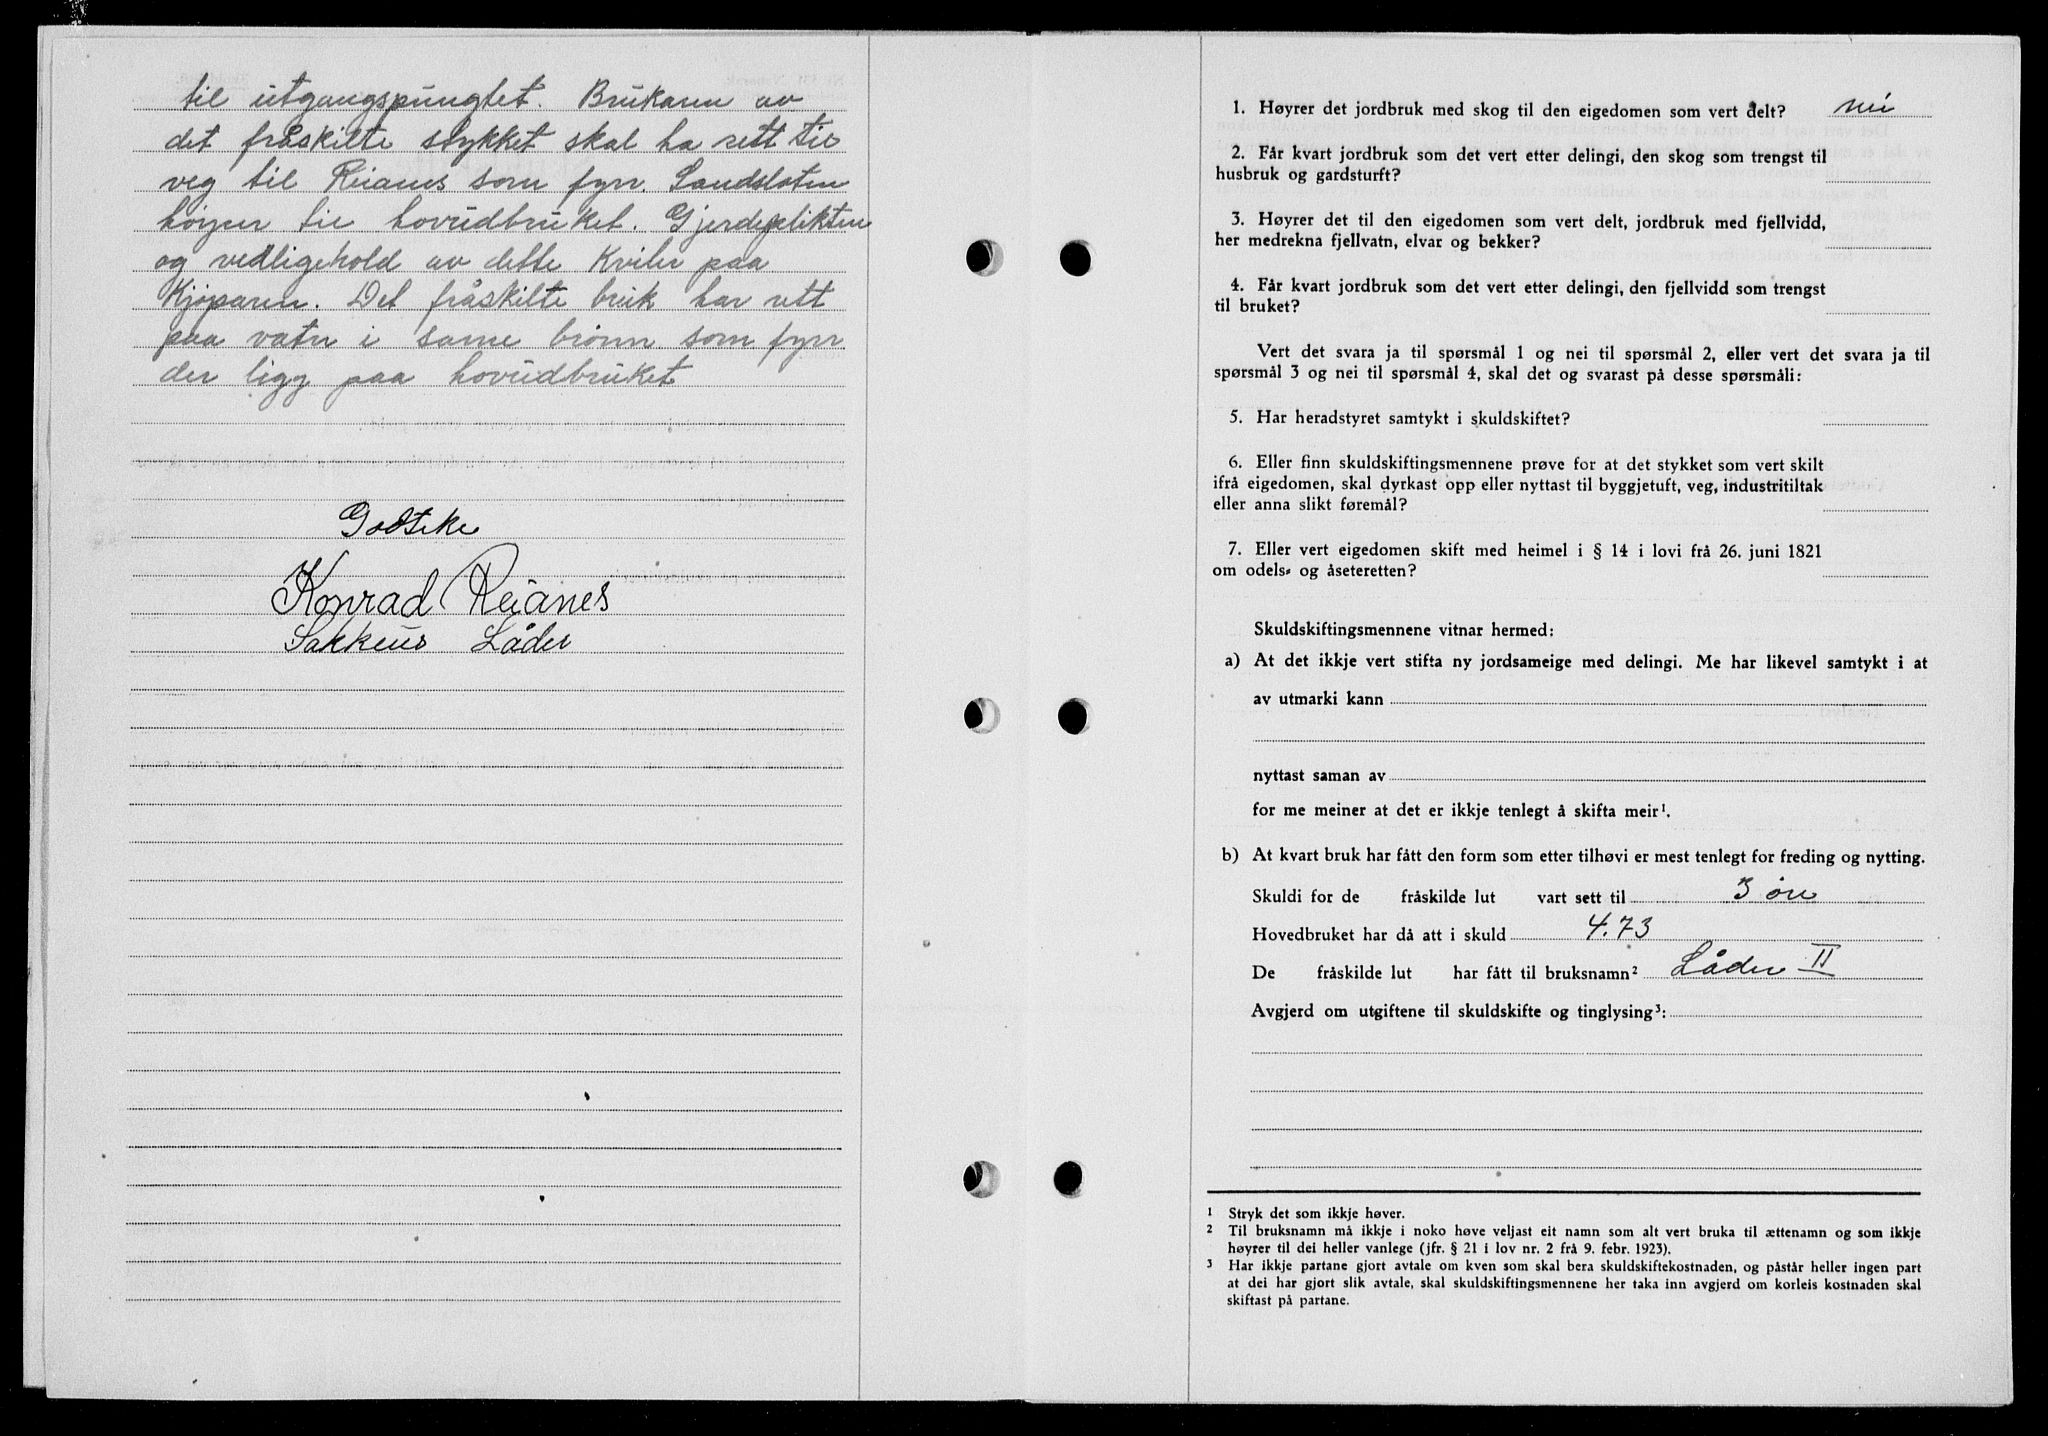 til utgangspungtet. Brukaren av
det fråskilte stykket skal ha rett til
veg til Reianes som fyrr. Landsloten
høyrer til hovudbruket. Gjerdeplikten
og vedligehold av dette kviler paa
Kjøparen. Det fråskilte bruk har rett
paa vatn i same brønn som fyrr
der ligg paa hovudbruket
Godteke
Konrad Reianes
Sakkeus Låder
1. Høyrer det jordbruk med skog til den eigedomen som vert delt? nei
2. Får kvart jordbruk som det vert etter delingi, den skog som trengst til
husbruk og gardsturft?
3. Høyrer det til den eigedomen som vert delt, jordbruk med fjellvidd,
her medrekna fjellvatn, elvar og bekker?
4. Får kvart jordbruk som det vert etter delingi, den fjellvidd som trengst
til bruket?
Vert det svara ja til spørsmål 1 og nei til spørsmål 2, eller vert det svara ja til
spørsmål 3 og nei til spørsmål 4, skal det og svarast på desse spørsmåli:
5. Har heradstyret samtykt i skuldskiftet?
6. Eller finn skuldskiftingsmennene prøve for at det stykket som vert skilt
ifrå eigedomen, skal dyrkast opp eller nyttast til byggjetuft, veg, industritiltak
eller anna slikt føremål?
7. Eller vert eigedomen skift med heimel i § 14 i lovi frå 26. juni 1821
om odels- og åseteretten?
Skuldskiftingsmennene vitnar hermed:
a) At det ikkje vert stifta ny jordsameige med delingi. Me har likevel samtykt i at
av utmarki kann
nyttast saman av
for me meiner at det er ikkje tenlegt å skifta meir¹.
b) At kvart bruk har fått den form som etter tilhøvi er mest tenlegt for freding og nytting.
Skuldi for de fråskilde lut vart sett til 3 øre
Hovedbruket har då att i skuld 4.73
De fråskilde lut har fått til bruksnamn² Låder II
Avgjerd om utgiftene til skuldskifte og tinglysing³:
1 Stryk det som ikkje høver.
2 Til bruksnamn må ikkje i noko høve veljast eit namn som alt vert bruka til ættenamn og som ikkje
høyrer til dei heller vanlege (jfr. § 21 i lov nr. 2 frå 9. febr. 1923).
3 Har ikkje partane gjort avtale om kven som skal bera skuldskiftekostnaden, og påstår heller ingen part
at dei har gjort slik avtale, skal skuldskiftingsmennene her taka inn avgjerd om korleis kostnaden skal
skiftast på partane.